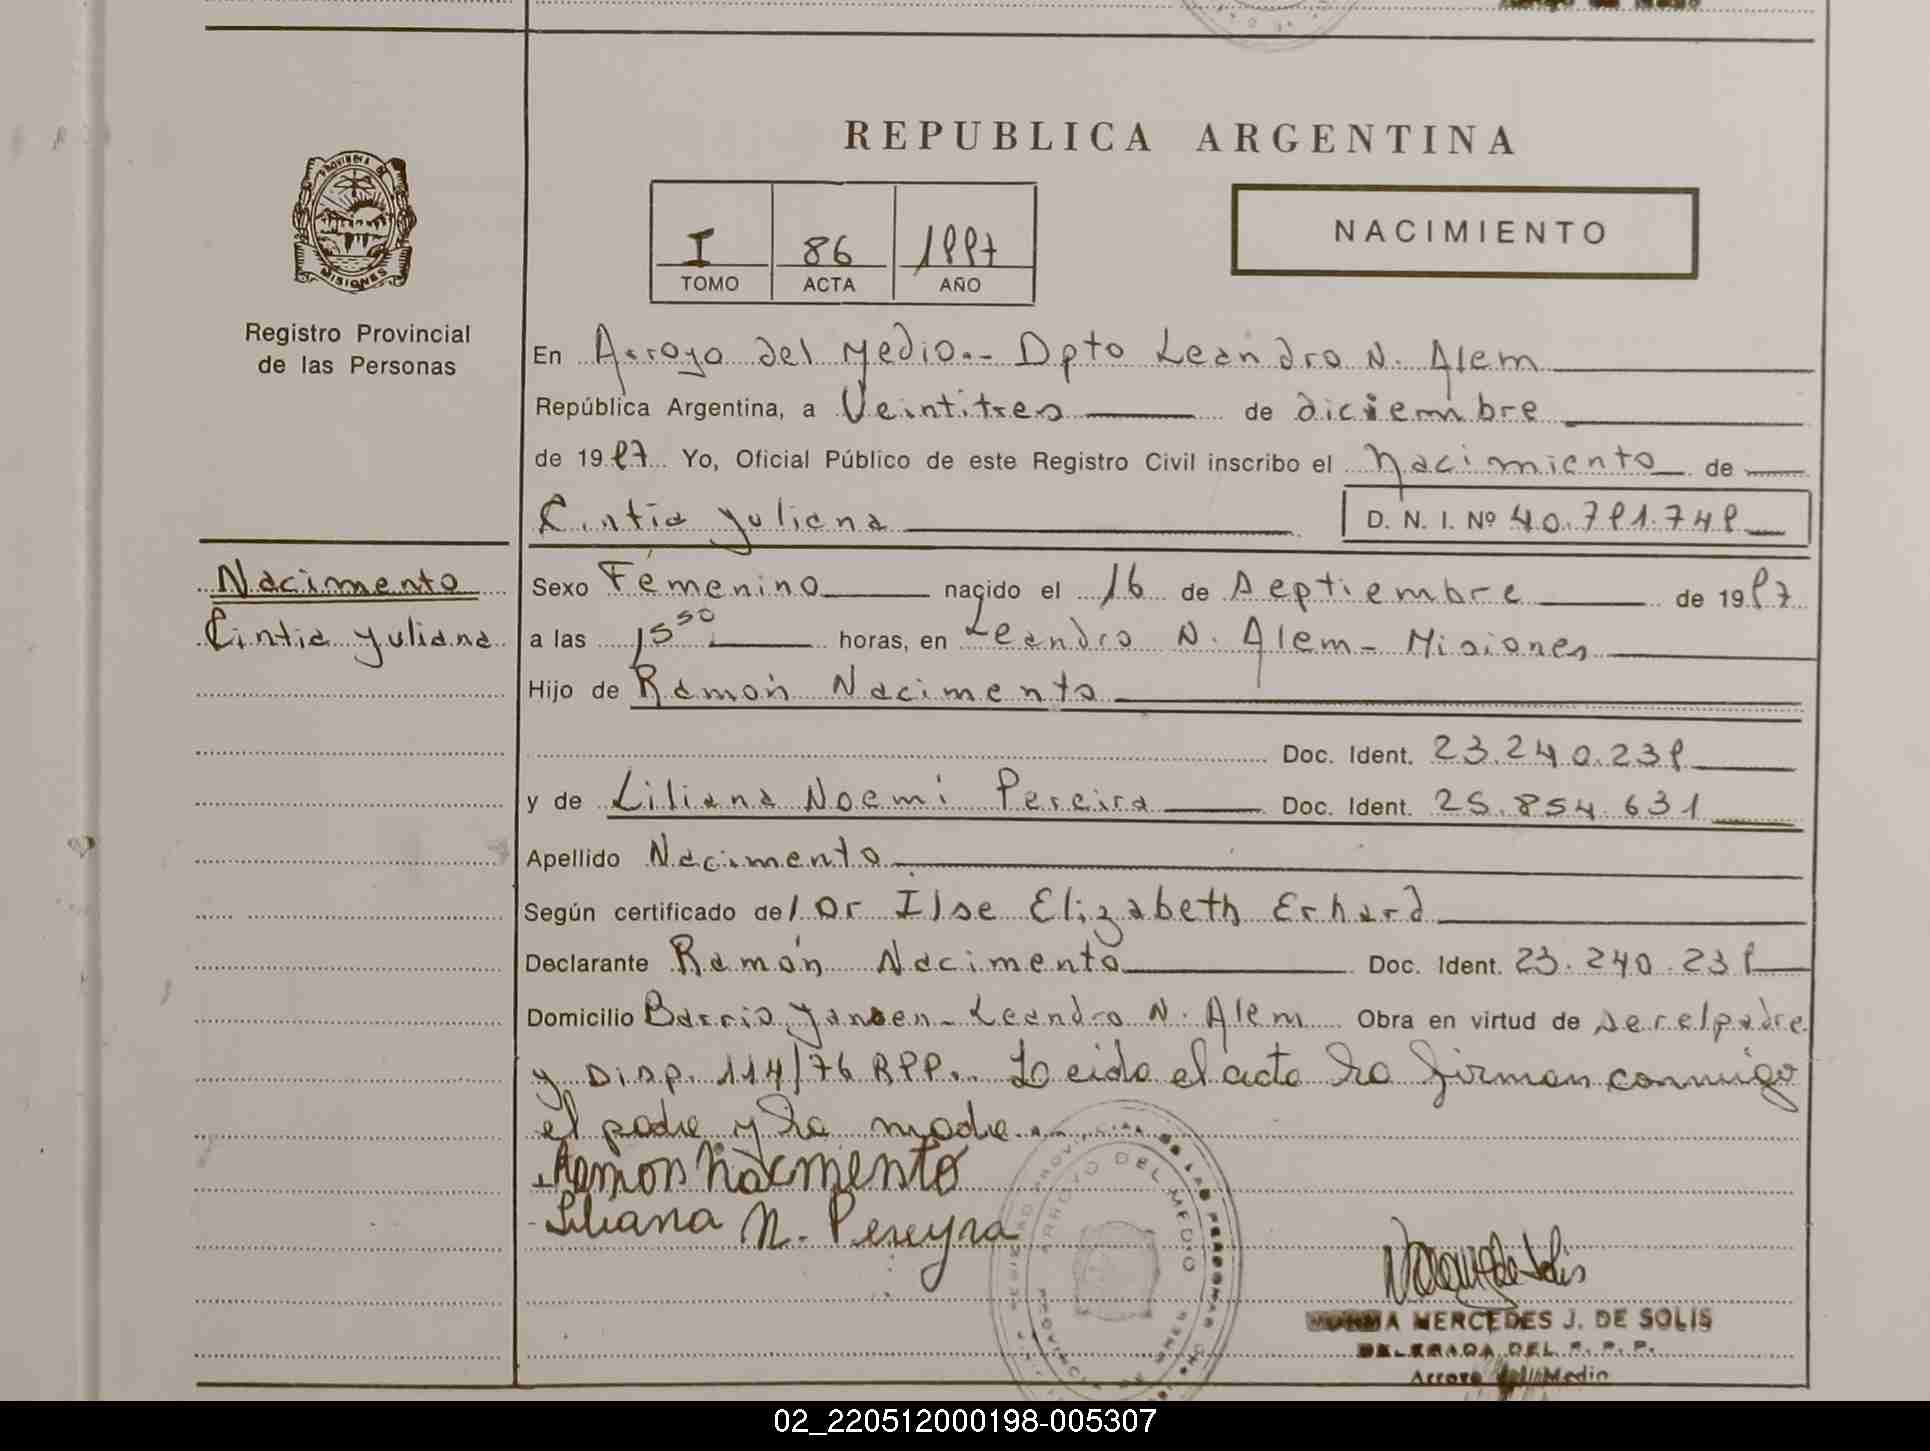 REPUBLICA ARGENTINA
PROVINCIA DE
MISIONES
Registro Provincial
de las Personas
I 86 1997
TOMO ACTA AÑO
NACIMIENTO
En Arroyo del Medio.- Dpto Leandro N. Alem
República Argentina, a Veintitres de diciembre
de 1997 Yo, Oficial Público de este Registro Civil inscribo el Nacimiento de
Cintia Yuliana D. N. I. Nº 40.791.749
Nacimento
Cintia Yuliana
Sexo Femenino nacido el 16 de Septiembre de 1997
a las 15 50 horas, en Leandro N. Alem - Misiones
Hijo de Ramón Nacimento
Doc. Ident. 23.240.239
y de Liliana Noemi Pereira Doc. Ident. 25.854.631
Apellido Nacimento
Según certificado de/ Dr Ilse Elizabeth Erhard
Declarante Ramón Nacimento Doc. Ident. 23.240.239
Domicilio Barrio Yansen - Leandro N. Alem Obra en virtud de ser el padre
y Disp. 114/76 RPP. Leida el acta la firman conmigo
el padre y la madre
Ramon Nacmento
Liliana N. Pereyra
ARROYO DEL MEDIO
NORMA MERCEDES J. DE SOLIS
DELEGADA DEL R. P. P.
Arroyo del Medio
02_220512000198-005307